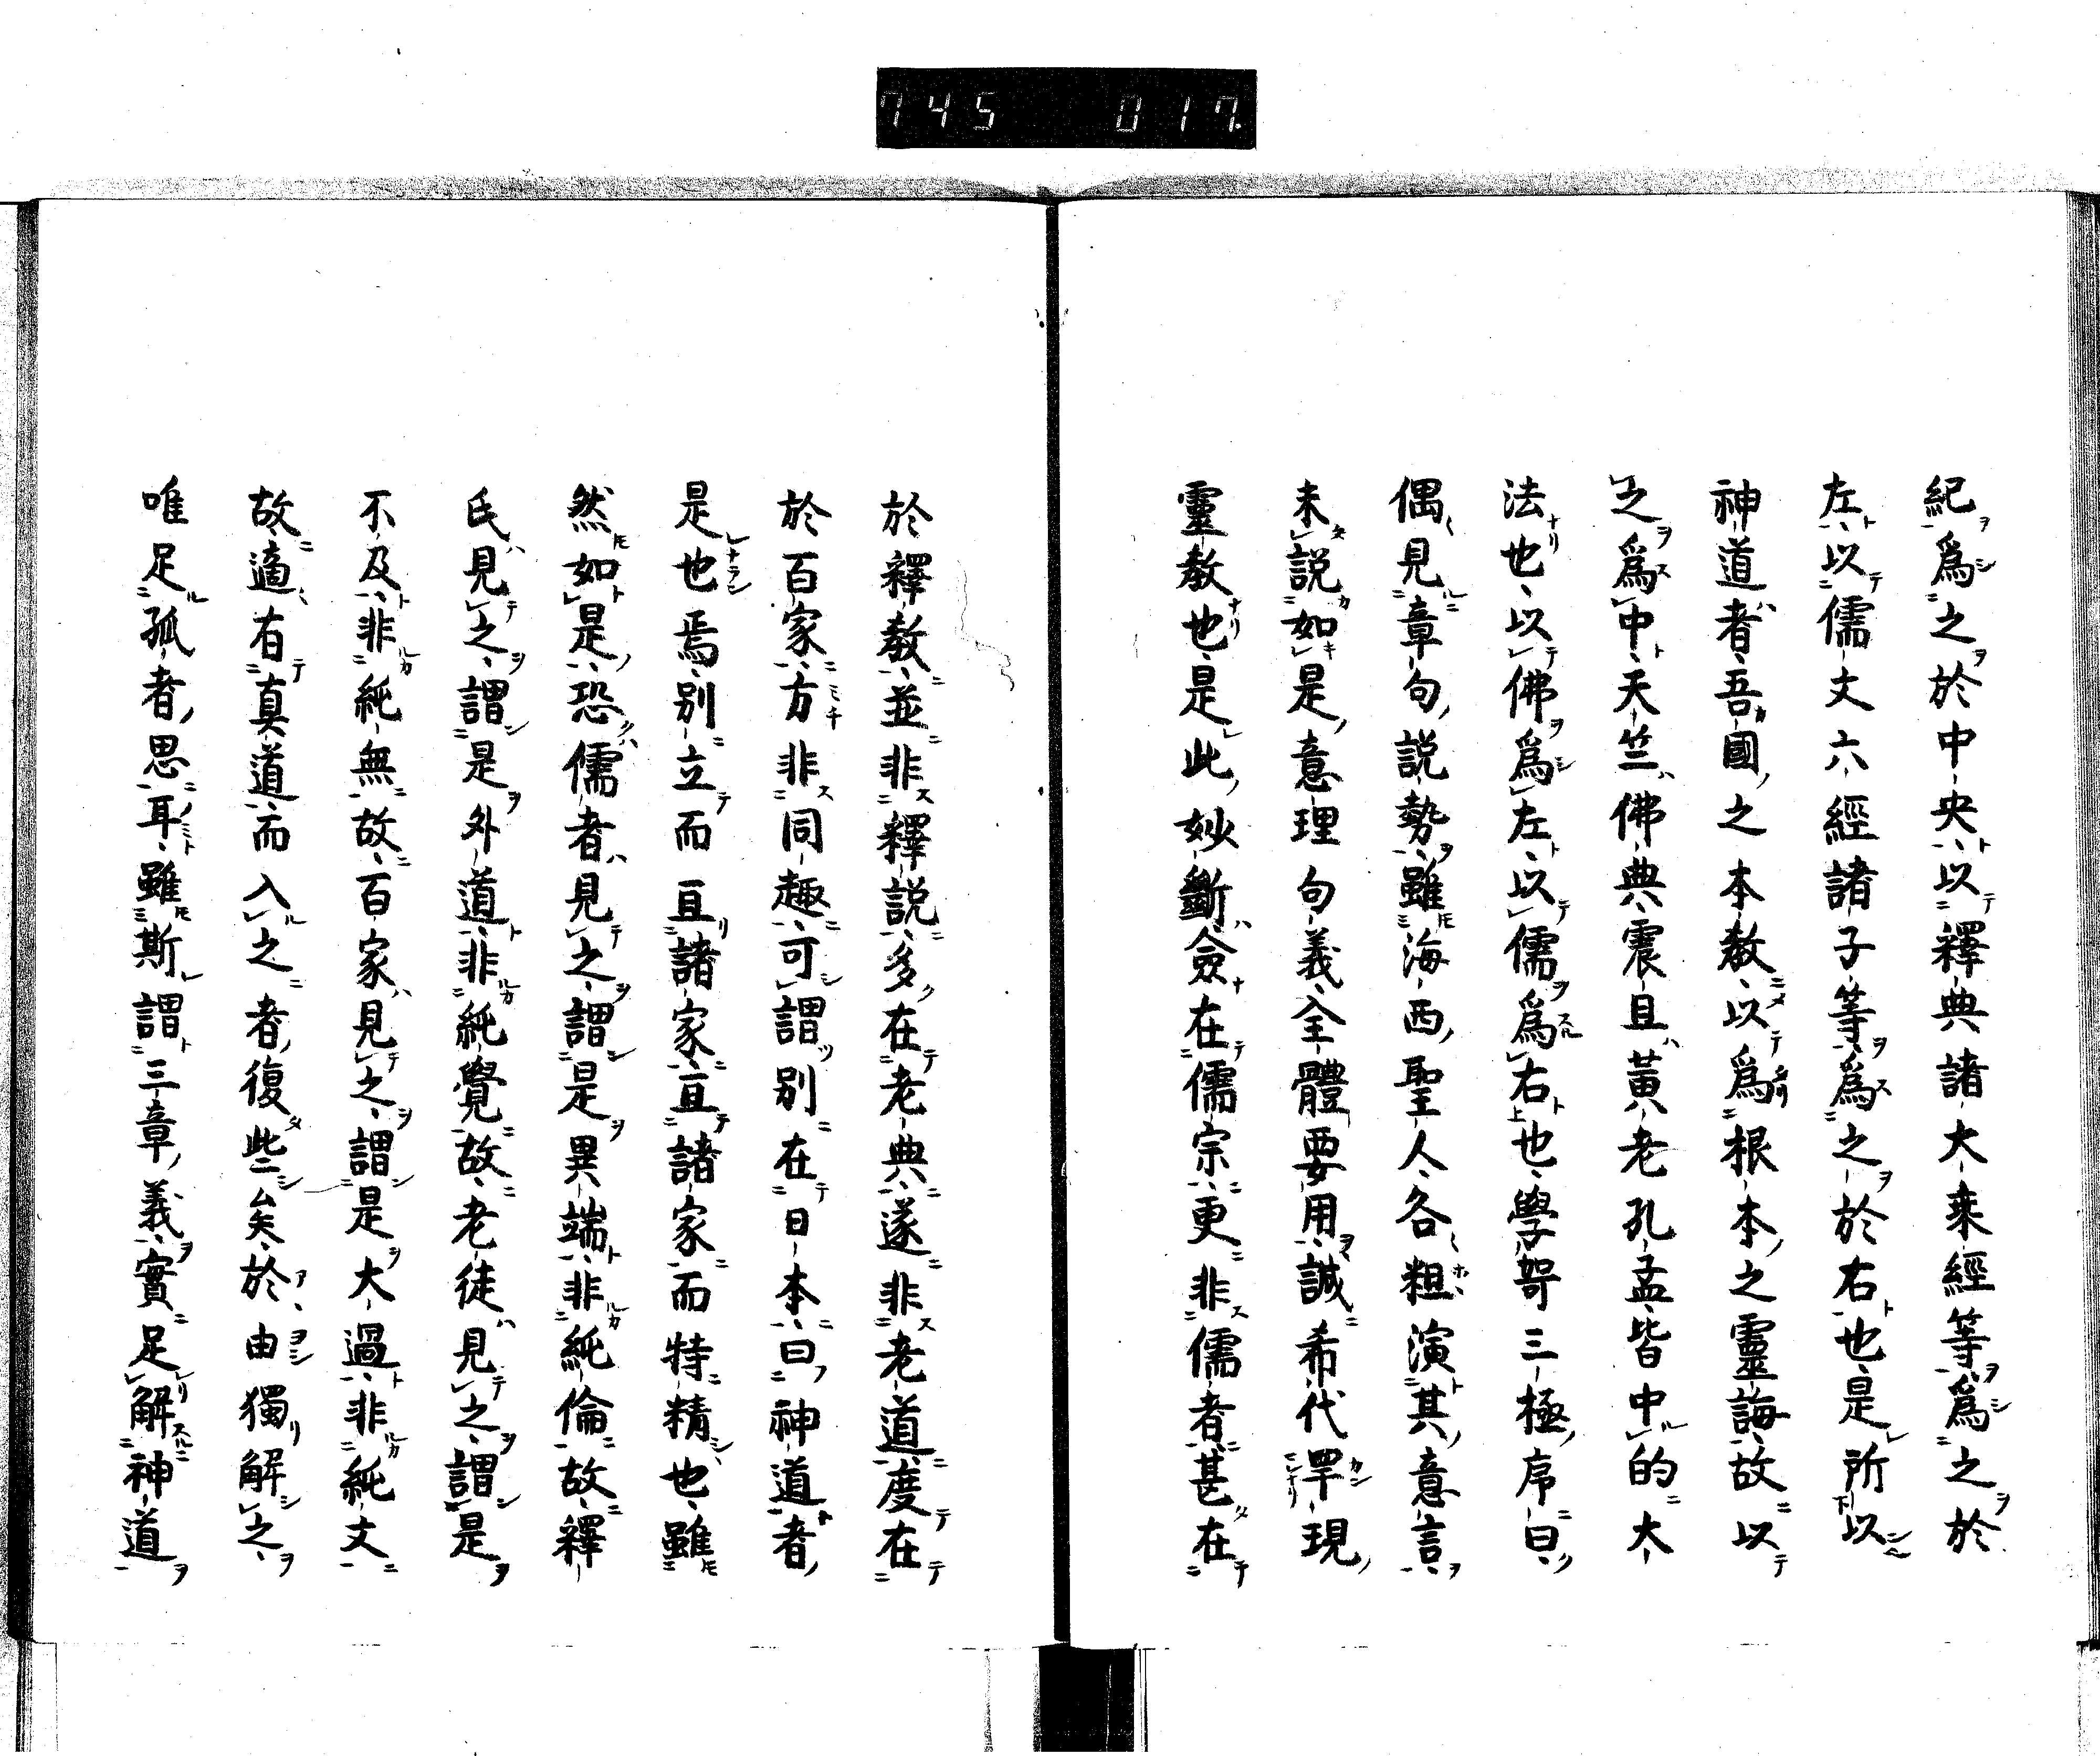 745 017
紀爲之於中央以釋典諸大乘經等爲之於
左以儒文六經諸子等爲之於右也是所以
神道者吾國之本教以爲根本之靈誨故以
之爲中天竺佛典震旦黃老孔孟皆中的大
法也以佛爲左以儒爲右也學哿三極序曰
偶見章句說勢雖海西聖人各粗演其意言
未說如是意理句義全體要用誠希代罕現
靈教也是此妙斷僉在儒宗更非儒者甚在
於釋教並非釋說多在老典遂非老道度在
於百家方非同趣可謂別在日本曰神道者
是也焉別立而亘諸家亘諸家而特精也雖
然如是恐儒者見之謂是異端非純倫故釋
氏見之謂是外道非純覺故老徒見之謂是
不及非純無故百家見之謂是大過非純丈
故適有真道而入之者復些矣於由獨解之
唯足孤者思耳雖斯謂三章義實足解神道